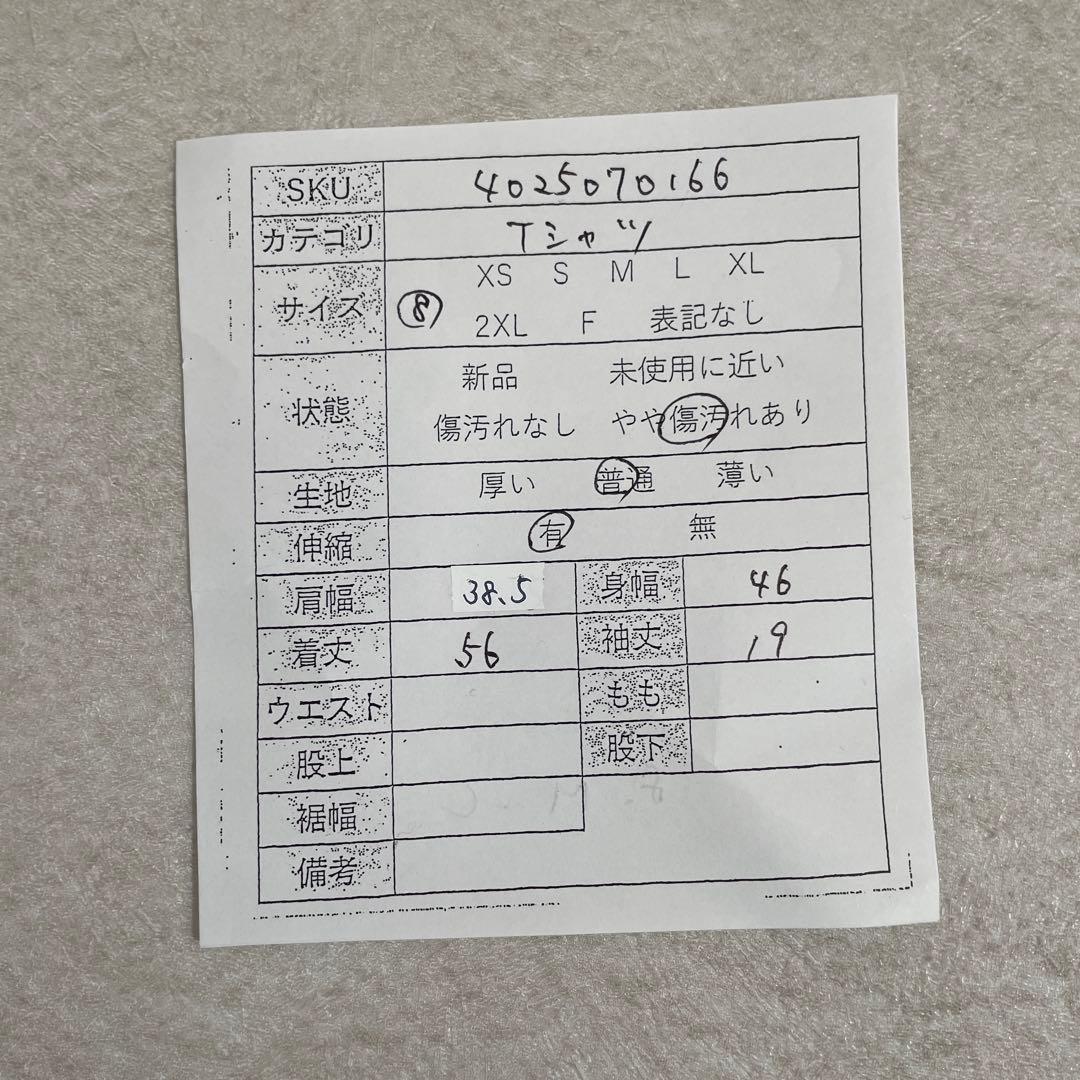 SKU 4025070166
カテゴリ Tシャツ
サイズ ⑧ XS S M L XL
2XL F 表記なし
状態 新品 未使用に近い
傷汚れなし やや傷汚れあり
生地 厚い 普通 薄い
伸縮 有 無
肩幅 38.5 身幅 46
着丈 56 袖丈 19
ウエスト もも
股上 股下
裾幅
備考